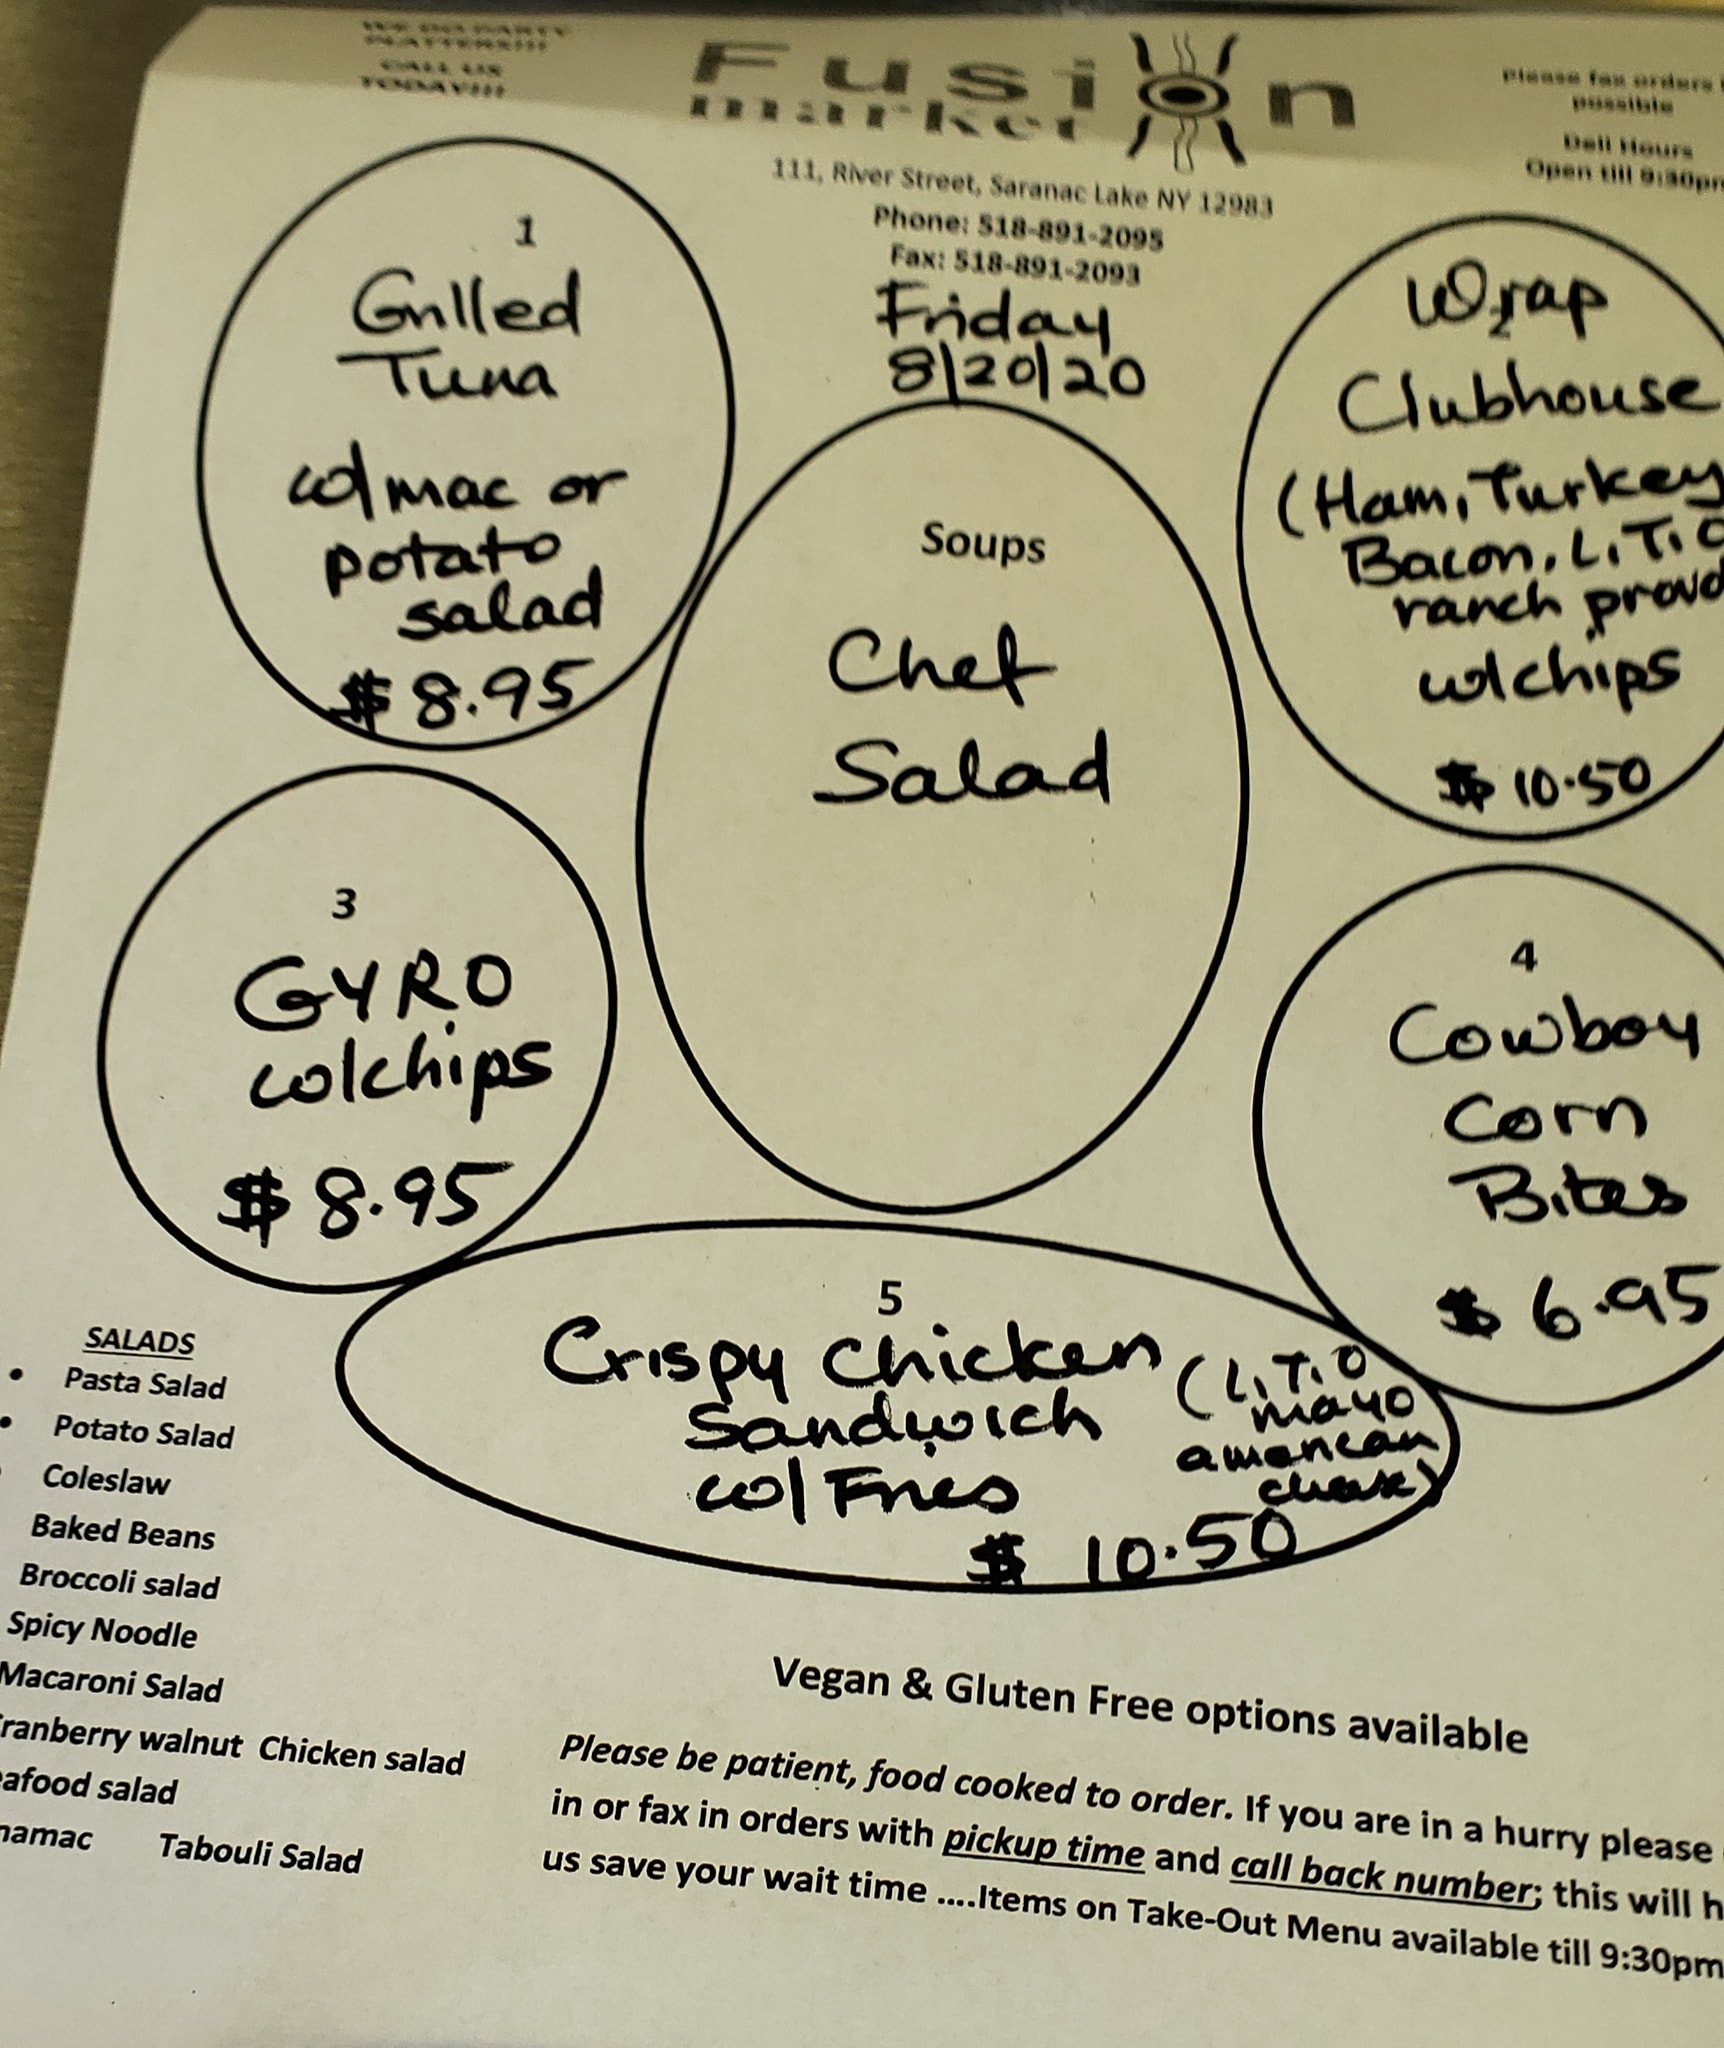 WE DO PARTY
PLATTERS!!!
CALL US
TODAY!!!
Fusion
market
Please fax orders
possible
Deli Hours
Open till 9:30pm
111, River Street, Saranac Lake NY 12983
Phone: 518-891-2095
Fax: 518-891-2093
Friday
8/20/20
1
Grilled
Tuna
w/mac or
potato
salad
$ 8.95
2
Wrap
Clubhouse
(Ham, Turkey
Bacon, L, T, O
ranch, provo
w/chips
$ 10.50
Soups
Chef
Salad
3
GYRO
w/chips
$ 8.95
4
Cowboy
Corn
Bites
$ 6.95
5
Crispy Chicken
Sandwich
w/Fries
(L, T, O
mayo
american
cheese)
$ 10.50
SALADS
• Pasta Salad
• Potato Salad
Coleslaw
Baked Beans
Broccoli salad
Spicy Noodle
Macaroni Salad
ranberry walnut Chicken salad
eafood salad
namac Tabouli Salad
Vegan & Gluten Free options available
Please be patient, food cooked to order. If you are in a hurry please
in or fax in orders with pickup time and call back number; this will h
us save your wait time ....Items on Take-Out Menu available till 9:30pm